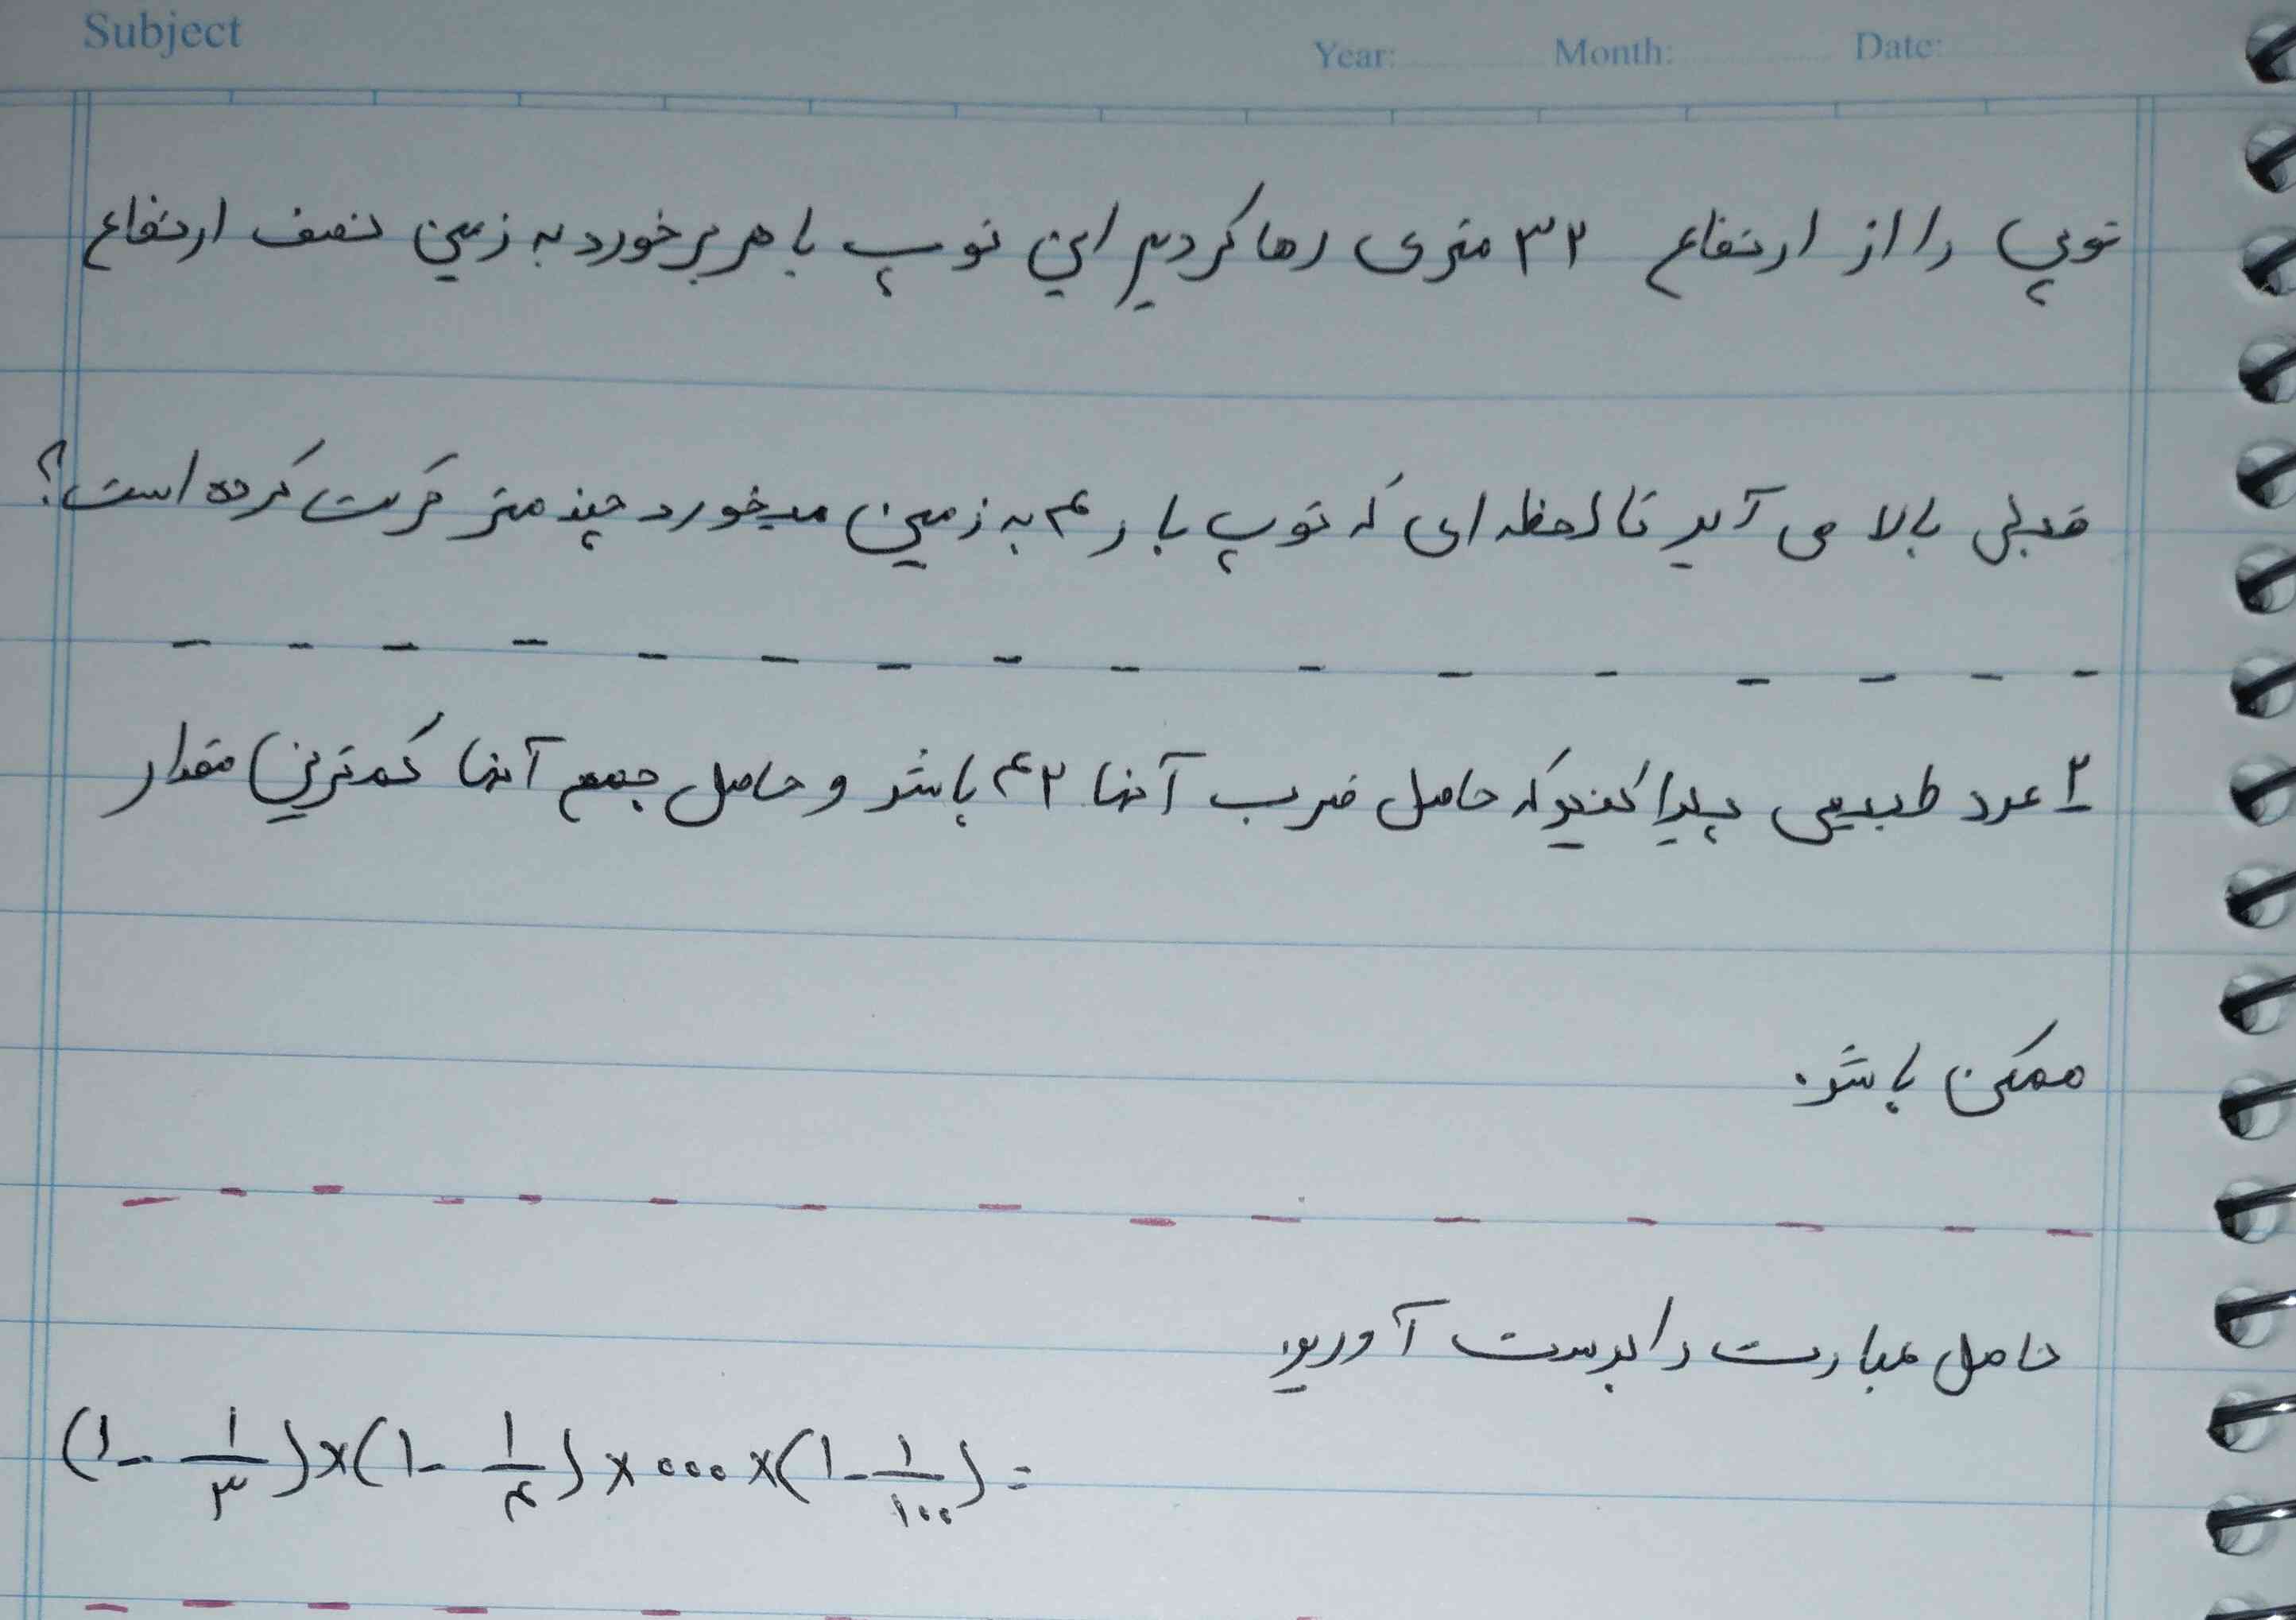 Subject
Year: Month: Date:
توپی را از ارتفاع ۳۲ متری رها کردیم این توپ با هر برخورد به زمین نصف ارتفاع
قبلی بالا می آید تا لحظه ای که توپ بار ۴م به زمین میخورد چند متر حرکت کرده است؟
۲ عدد طبیعی پیدا کنید که حاصل ضرب آنها ۴۲ باشد و حاصل جمع آنها کمترین مقدار
ممکن باشد.
حاصل عبارت را بدست آورید
(۱ - ۱/۳) × (۱ - ۱/۴) × ... × (۱ - ۱/۱۰۰) =